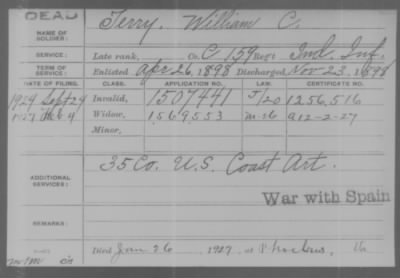 DEAD
NAME OF SOLDIER: Terry, William C.
SERVICE: Late rank, Co. C 159 Reg't Ind. Inf.
TERM OF SERVICE: Enlisted Apr 26, 1898 Discharged Nov 23, 1898
DATE OF FILING. CLASS. APPLICATION NO. LAW. CERTIFICATE NO.
1924 Sept 24 Invalid, 1507441 5/20 1256,516
1927 Feb 4 Widow, 1569553 M-16 912-2-27
Minor,
ADDITIONAL SERVICES: 35 Co. U.S. Coast Art.
War with Spain
REMARKS:
Died Jan 26 1927, at Phoebus, Va